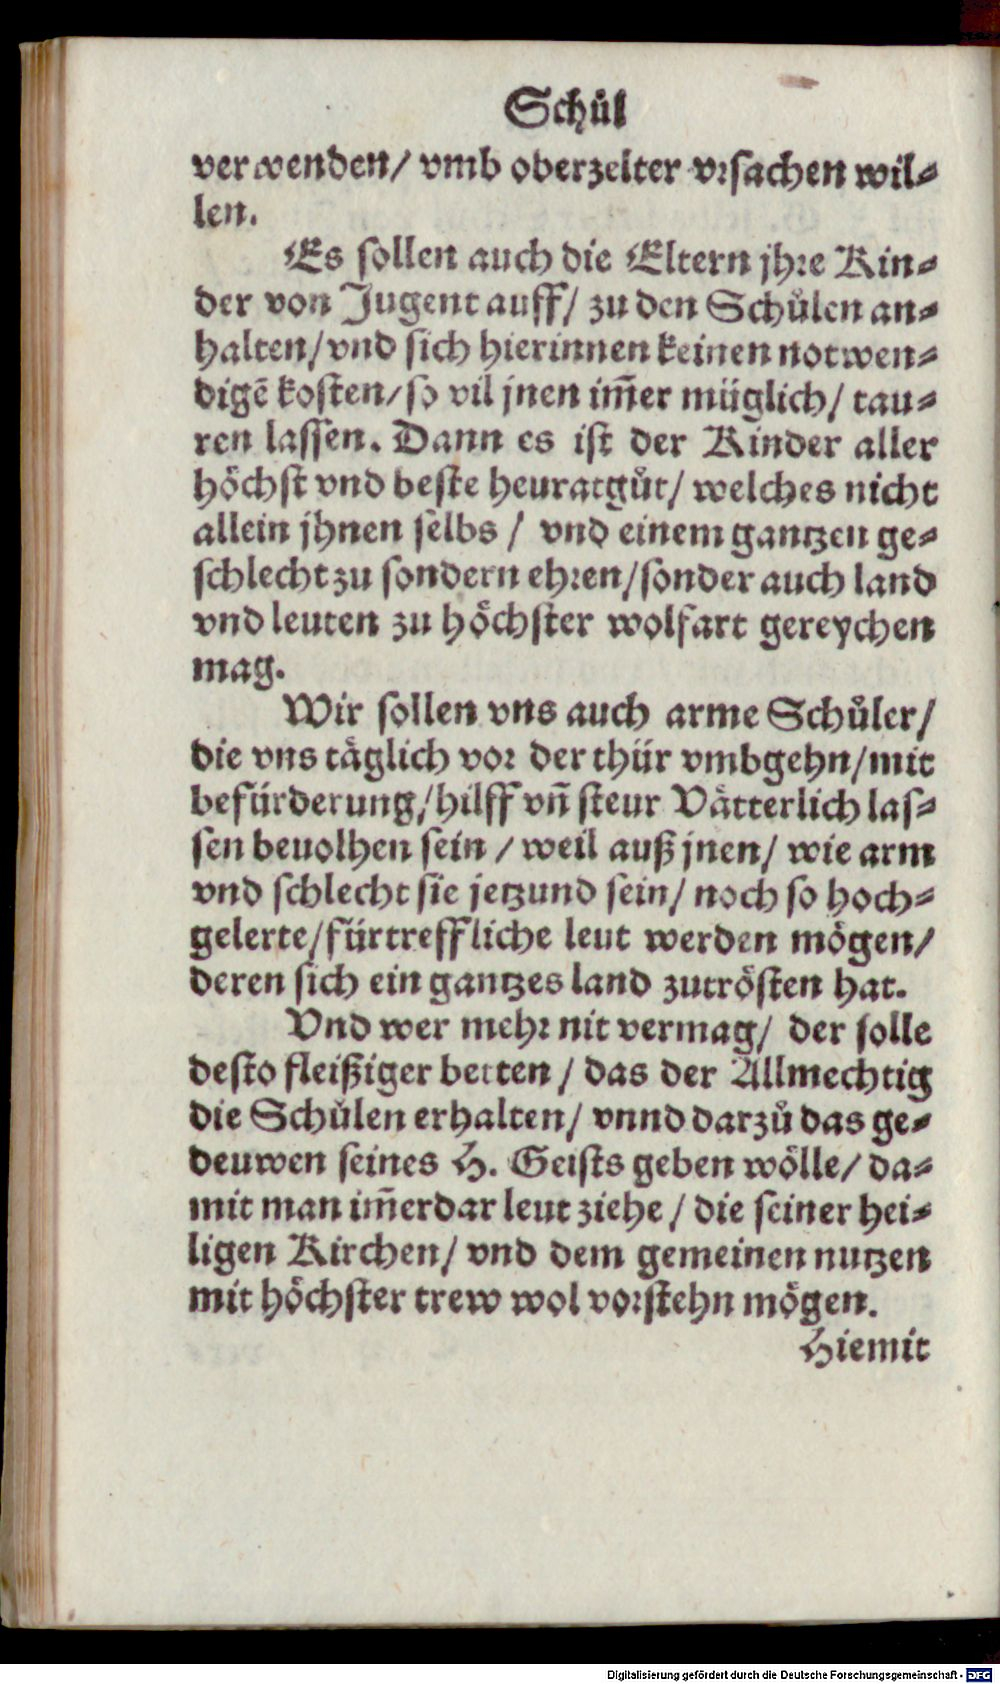 Schůl
verwenden/ vmb oberzelter vrsachen wil-
len.
Es sollen auch die Eltern jhre Kin-
der von Jugent auff/ zu den Schůlen an-
halten/ vnd sich hierinnen keinen notwen-
digē kosten/ so vil jnen im̄er müglich/ tau-
ren lassen. Dann es ist der Kinder aller
höchst vnd beste heuratgůt/ welches nicht
allein jhnen selbs / vnd einem gantzen ge-
schlecht zu sondern ehren/ sonder auch land
vnd leuten zu höchster wolfart gereychen
mag.
Wir sollen vns auch arme Schůler/
die vns täglich vor der thür vmbgehn/ mit
befürderung/ hilff vn̄ steur Vätterlich las-
sen beuolhen sein / weil auß jnen/ wie arm
vnd schlecht sie jetzund sein/ noch so hoch-
gelerte/ fürtreffliche leut werden mögen/
deren sich ein gantzes land zutrösten hat.
Vnd wer mehr nit vermag/ der solle
desto fleißiger betten / das der Allmechtig
die Schůlen erhalten/ vnnd darzů das ge-
deuwen seines H. Geists geben wölle/ da-
mit man im̄erdar leut ziehe / die seiner hei-
ligen Kirchen/ vnd dem gemeinen nutzen
mit höchster trew wol vorstehn mögen.
Hiemit
Digitalisierung gefördert durch die Deutsche Forschungsgemeinschaft - DFG